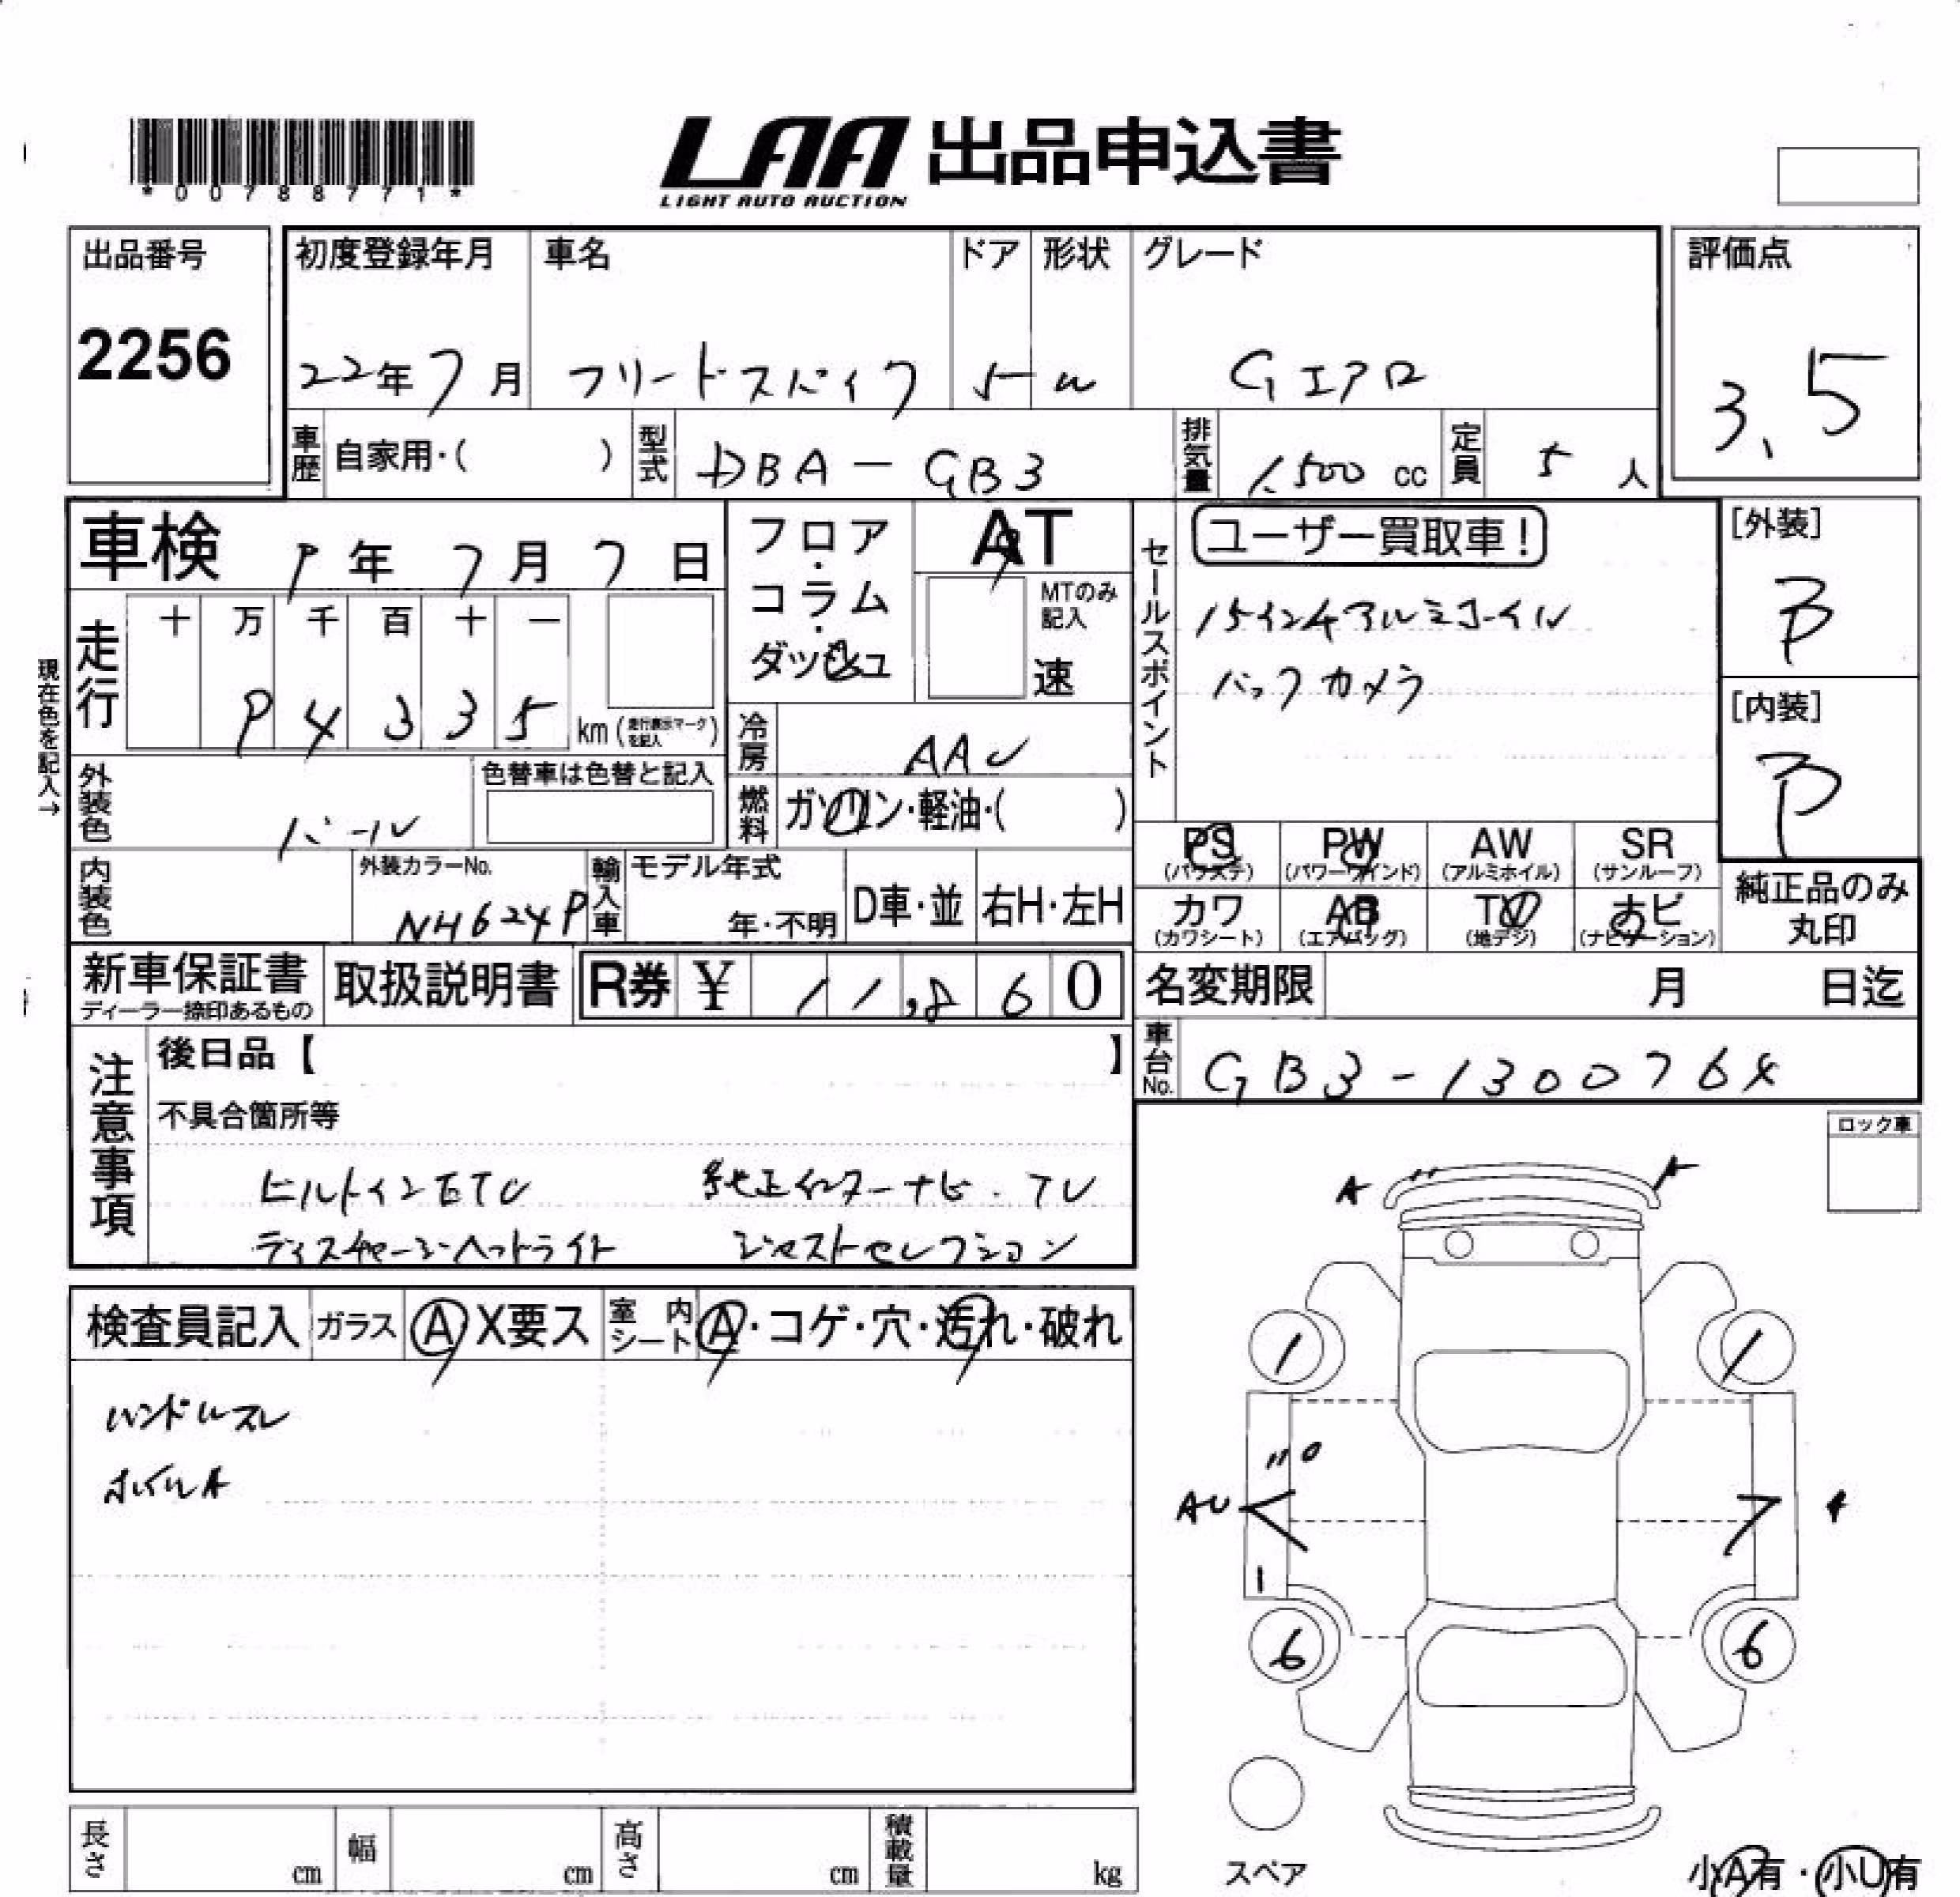 *00788771*
LAA 出品申込書
LIGHT AUTO AUCTION
出品番号
2256
初度登録年月
22年7月
車名
フリードスパイク
ドア
5
形状
W
グレード
Gエアロ
評価点
3.5
車歴 自家用・( )
型式 DBA-GB3
排気量 1,500 cc
定員 5 人
車検 年 7月 7日
走行
十 万 千 百 十 一
4 3 3 5 km (走行表示マークを記入)
現在色を記入→
外装色 パール
色替車は色替と記入
内装色
外装カラーNo.
NH624P
フロア・コラム・ダッシュ
AT
MTのみ記入
速
冷房 AAC
燃料 ガソリン・軽油・( )
輸入車
モデル年式
年・不明
D車・並
右H・左H
セールスポイント
ユーザー買取車!
15インチアルミホイル
バックカメラ
[外装]
B
[内装]
PS (パワステ)
PW (パワーウインド)
AW (アルミホイル)
SR (サンルーフ)
カワ (カワシート)
AB (エアバッグ)
TV (地デジ)
ナビ (ナビゲーション)
純正品のみ
丸印
新車保証書
ディーラー捺印あるもの
取扱説明書
R券 ¥ 11,860
名変期限 月 日迄
車台No. GB3-130076X
注意事項
後日品【 】
不具合箇所等
ビルトインETC 純正インターナビ・TV
ディスチャージヘットライト ジャストセレクション
ロック車
検査員記入
ガラス A X要ス
室内シート A・コゲ・穴・汚れ・破れ
ハンドルスレ
ホイルA
A " A
1 1
" 0
AU A
1
6 6
スペア
小A有・小U有
長さ cm
幅 cm
高さ cm
積載量 kg